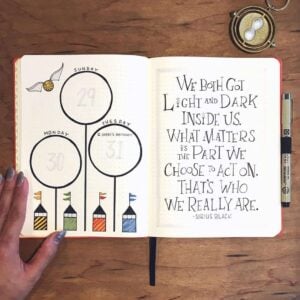 SUNDAY
29
TUESDAY
31
MONDAY
30
WE BOTH GOT
LIGHT AND DARK
INSIDE US.
WHAT MATTERS
IS THE PART WE
CHOOSE TO ACT ON.
THAT'S WHO
WE REALLY ARE.
-SIRIUS BLACK